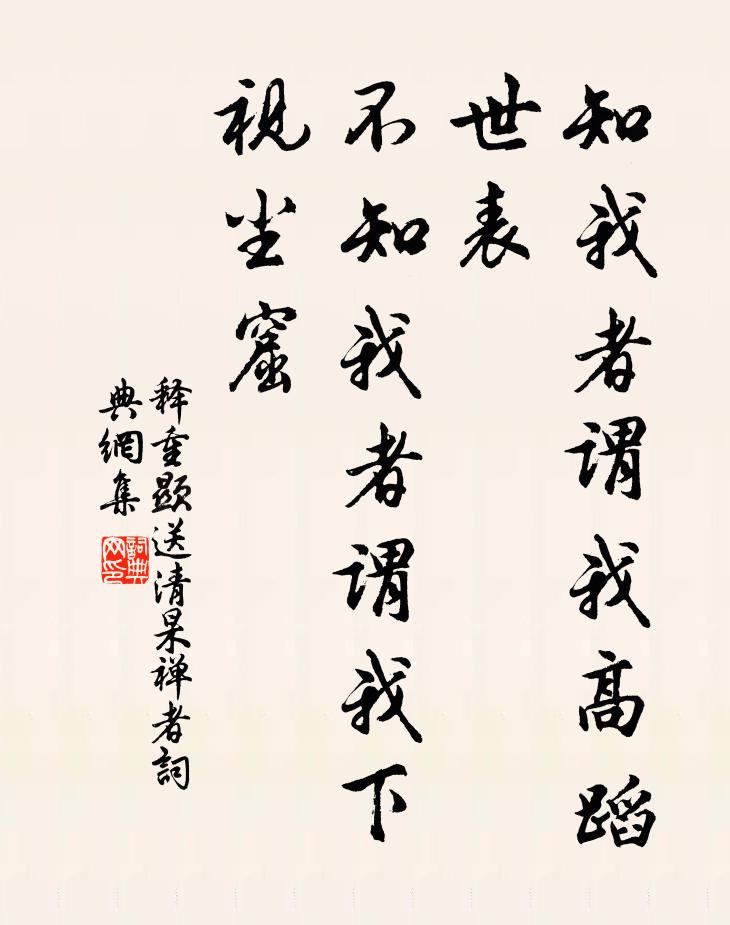 知我者谓我高蹈
世表
不知我者谓我下
視尘窟
释重顕送清杲禅者詞
典網集
詞典
网印